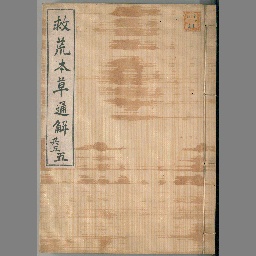 救荒本草通解 五